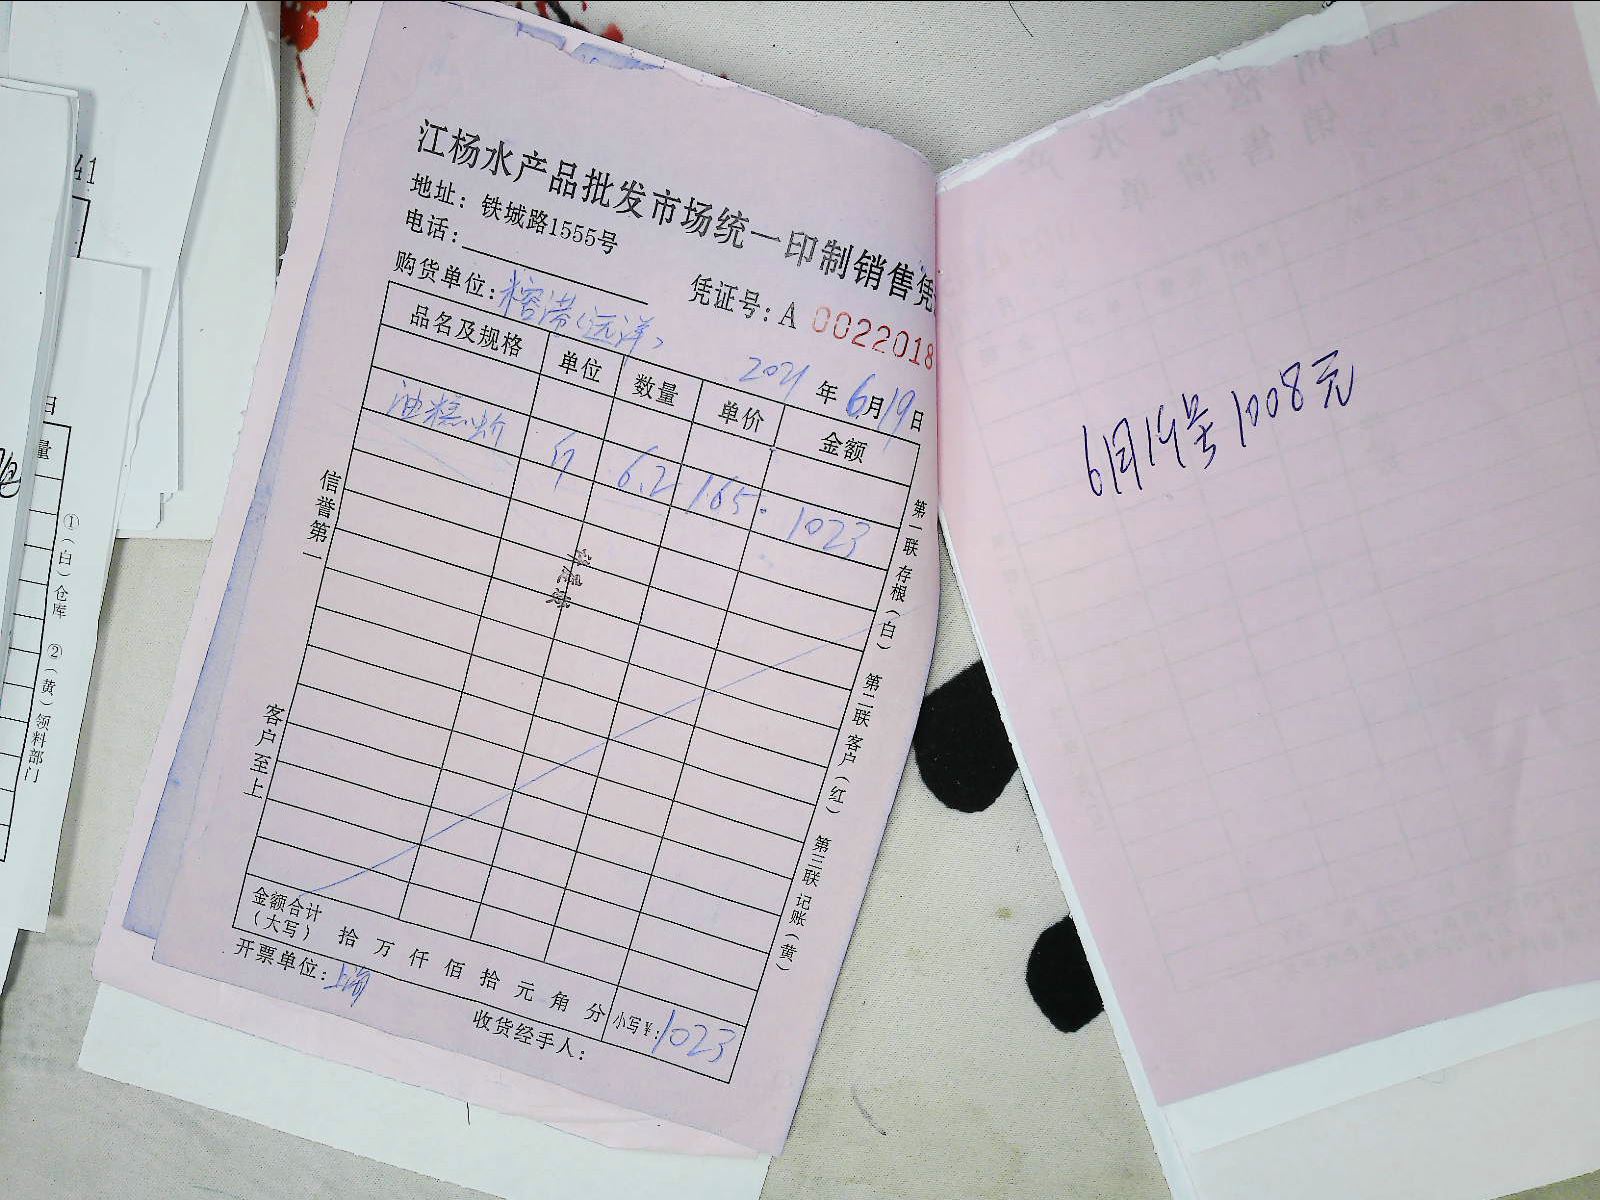 江杨水产品批发市场统一印制销售凭
地址：铁城路1555号
电话：
凭证号：A 0022018
购货单位：榕港（远洋）
2021年6月19日
品名及规格 单位 数量 单价 金额
油糕 斤 6.2 165. 1023
信誉第一
客户至上
第一联 存根（白） 第二联 客户（红） 第三联 记账（黄）
金额合计（大写） 拾 万 仟 佰 拾 元 角 分 小写￥：1023
开票单位：上海
收货经手人：
6月19号1008元
41
日
量
①（白）仓库 ②（黄）领料部门